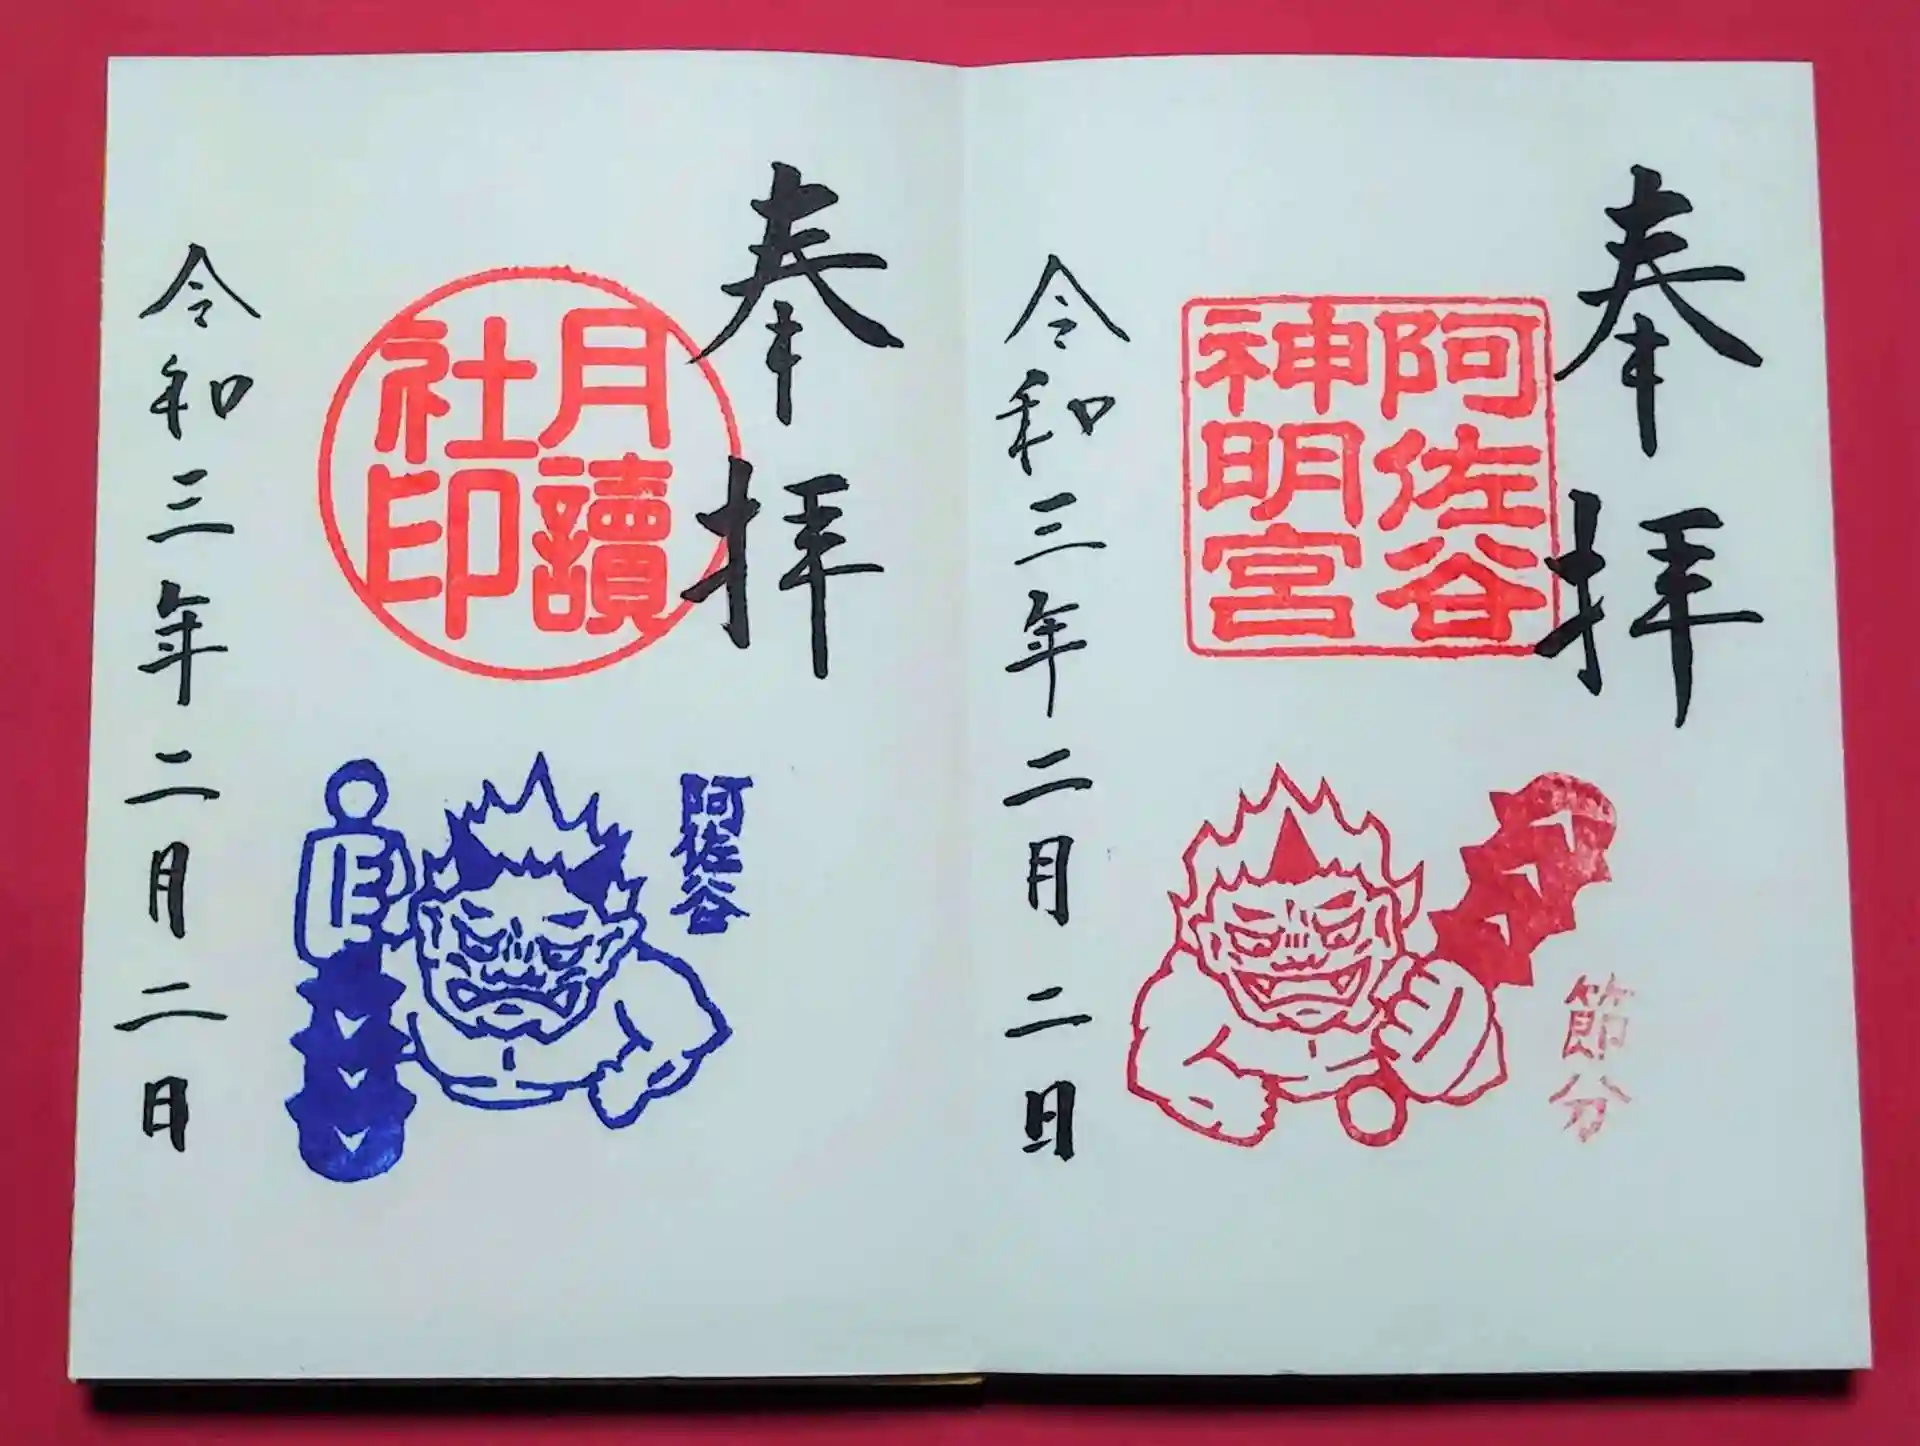 奉拝
阿佐谷
神明宮
節分
令和三年二月二日
奉拝
月讀
社印
阿佐谷
令和三年二月二日